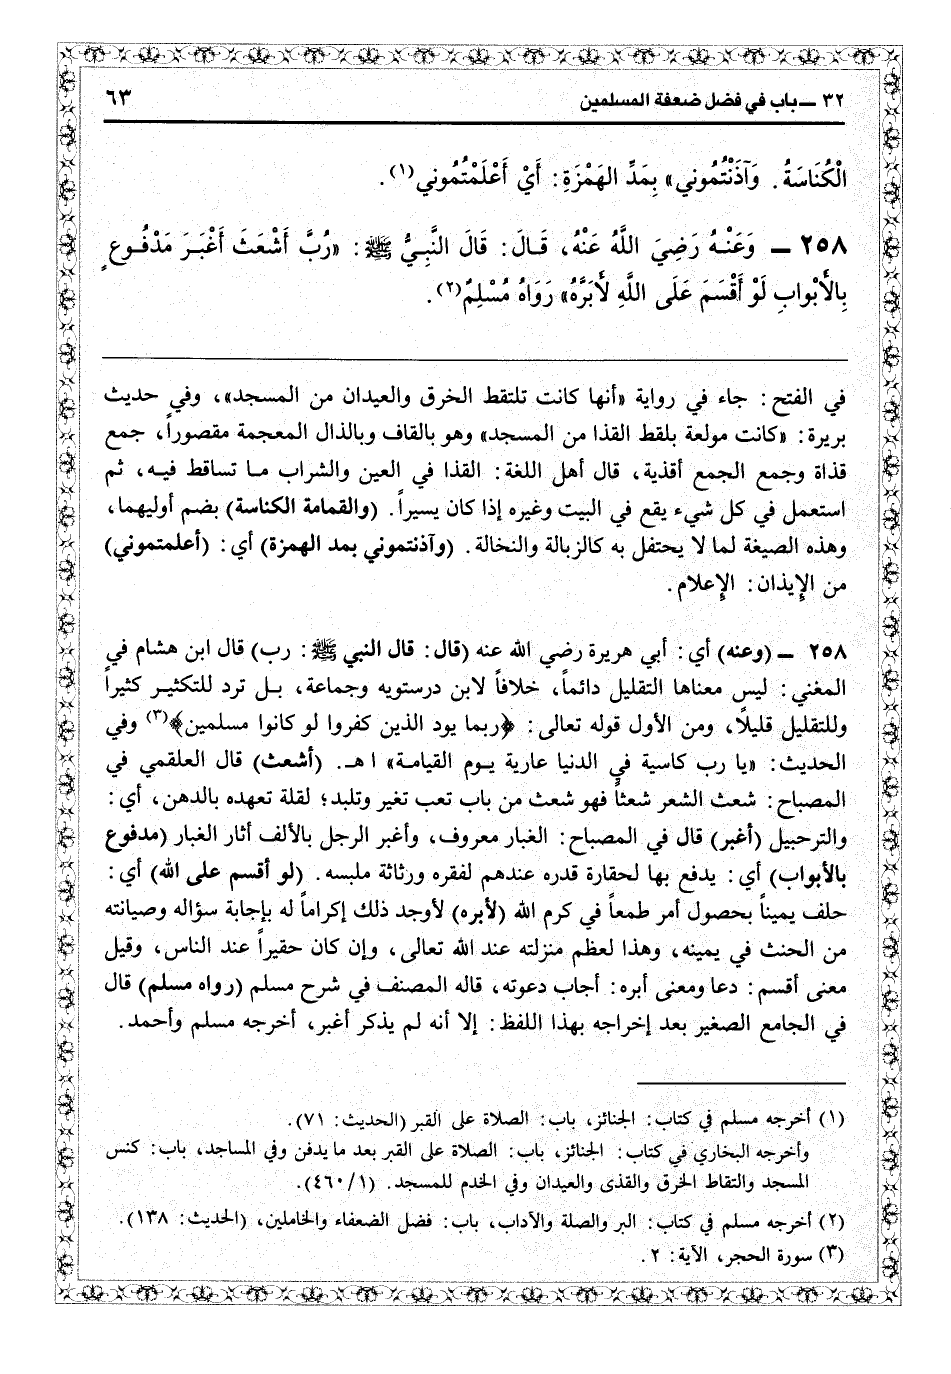 ٣٢ ــ باب في فضل ضعفة المسلمين ٦٣
الْكُنَاسَةُ. وَآذَنْتُمُوني» بِمَدِّ الهَمْزَةِ: أَيْ أَعْلَمْتُمُوني(١).
٢٥٨ ــ وَعَنْـهُ رَضِيَ اللَّهُ عَنْهُ، قَـالَ: قَالَ النَّبِـيُّ ﷺ: «رُبَّ أَشْعَثَ أَغْبَـرَ مَدْفُـوعٍ
بِالأَبْوابِ لَوْ أَقْسَمَ عَلَى اللَّهِ لأَبَرَّهُ» رَوَاهُ مُسْلِمٌ(٢).
في الفتح: جاء في رواية «أنها كانت تلتقط الخرق والعيدان من المسجد»، وفي حديث
بريرة: «كانت مولعة بلقط القذا من المسجد» وهو بالقاف وبالذال المعجمة مقصوراً، جمع
قذاة وجمع الجمع أقذية، قال أهل اللغة: القذا في العين والشراب مـا تساقط فيـه، ثم
استعمل في كل شيء يقع في البيت وغيره إذا كان يسيراً. (والقمامة الكناسة) بضم أوليهما،
وهذه الصيغة لما لا يحتفل به كالزبالة والنخالة. (وآذنتموني بمد الهمزة) أي: (أعلمتموني)
من الإيذان: الإعلام.
٢٥٨ ــ (وعنه) أي: أبي هريرة رضي الله عنه (قال: قال النبي ﷺ: رب) قال ابن هشام في
المغني: ليس معناها التقليل دائماً، خلافاً لابن درستويه وجماعة، بـل ترد للتكثيـر كثيراً
وللتقليل قليلاً، ومن الأول قوله تعالى: ﴿ربما يود الذين كفروا لو كانوا مسلمين﴾(٣) وفي
الحديث: «يا رب كاسية في الدنيا عارية يـوم القيامـة» ا هـ. (أشعث) قال العلقمي في
المصباح: شعث الشعر شعثاً فهو شعث من باب تعب تغير وتلبد؛ لقلة تعهده بالدهن، أي:
والترحبيل (أغبر) قال في المصباح: الغبار معروف، وأغبر الرجل بالألف أثار الغبار (مدفوع
بالأبواب) أي: يدفع بها لحقارة قدره عندهم لفقره ورثاثة ملبسه. (لو أقسم على الله) أي:
حلف يميناً بحصول أمر طمعاً في كرم الله (لأبره) لأوجد ذلك إكراماً له بإجابة سؤاله وصيانته
من الحنث في يمينه، وهذا لعظم منزلته عند الله تعالى، وإن كان حقيراً عند الناس، وقيل
معنى أقسم: دعا ومعنى أبره: أجاب دعوته، قاله المصنف في شرح مسلم (رواه مسلم) قال
في الجامع الصغير بعد إخراجه بهذا اللفظ: إلا أنه لم يذكر أغبر، أخرجه مسلم وأحمد.
(١) أخرجه مسلم في كتاب: الجنائز، باب: الصلاة على القبر (الحديث: ٧١).
وأخرجه البخاري في كتاب: الجنائز، باب: الصلاة على القبر بعد ما يدفن وفي المساجد، باب: كنس
المسجد والتقاط الخرق والقذى والعيدان وفي الخدم للمسجد. (٤٦٠/١).
(٢) أخرجه مسلم في كتاب: البر والصلة والآداب، باب: فضل الضعفاء والخاملين، (الحديث: ١٣٨).
(٣) سورة الحجر، الآية: ٢.